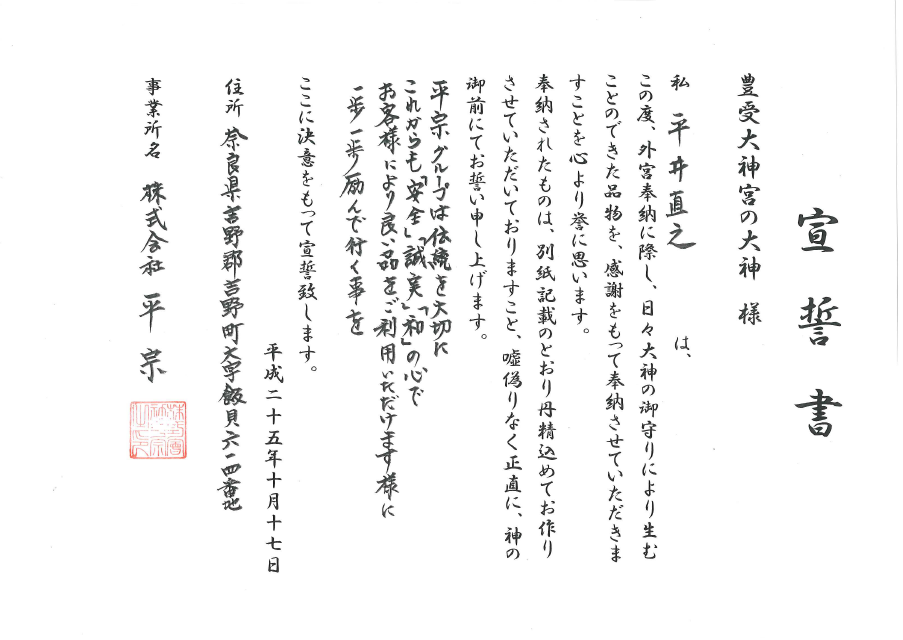 宣誓書
豊受大神宮の大神 様
私 平井直之 は、
この度、外宮奉納に際し、日々大神の御守りにより生む
ことのできた品物を、感謝をもって奉納させていただきま
すことを心より誉に思います。
奉納されたものは、別紙記載のとおり丹精込めてお作り
させていただいておりますこと、嘘偽りなく正直に、神の
御前にてお誓い申し上げます。
平宗グループは伝統を大切に
これからも「安全」「誠実」「和」の心で
お客様により良い品をご利用いただけます様に
一歩一歩励んで行く事を
ここに決意をもって宣誓致します。
平成二十五年十月十七日
住所 奈良県吉野郡吉野町大字飯貝六一四番地
事業所名 株式会社 平宗